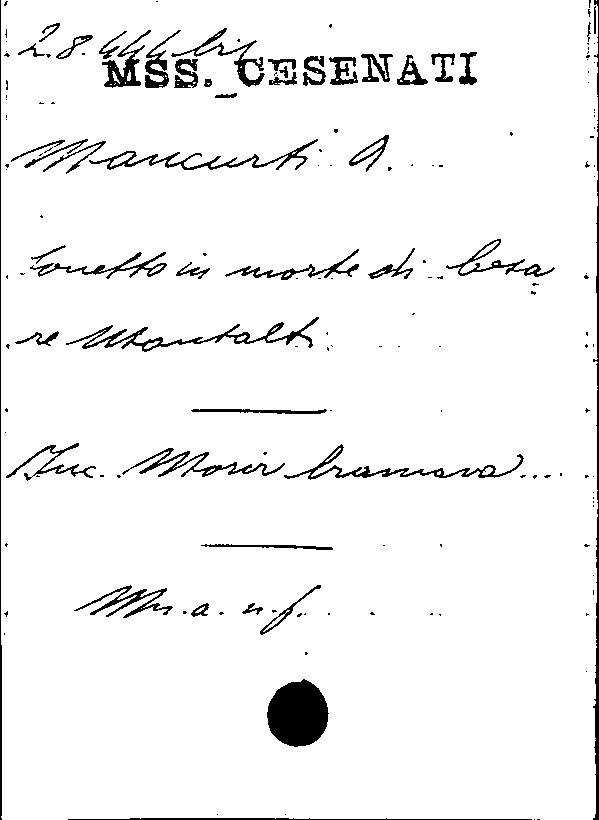 28.444 bis
MSS. CESENATI
Mancurti A.
Sonetto in morte di Cesa
re Montalti
Inc. Morir bramava...
Ms. a. n. f.